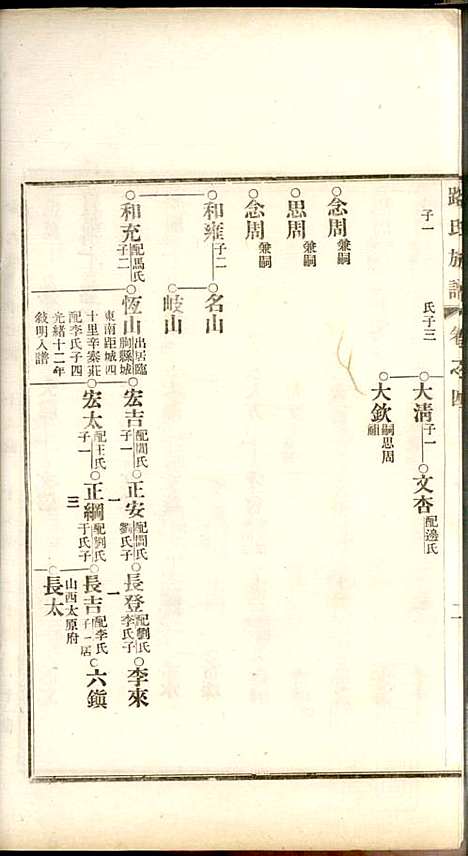 路氏族譜 卷之四 二
子一
氏子三
大清 子一
文杏 配邊氏
大欽 嗣思周
念周 兼嗣
思周 兼嗣
念周 兼嗣
和雍 子二
名山
岐山
和充 配馬氏 子二
恆山 出居臨朐縣城東南距城四十里辛泰莊配李氏子四光緒十二年敍明入譜
宏吉 配閻氏 子一
正安 配閻氏 劉氏子一
長登 配劉氏 李氏子一
李來
宏太 配王氏 子一
正綱 配劉氏 于氏子三
長吉 配李氏 子一居山西太原府
六鎮
長太